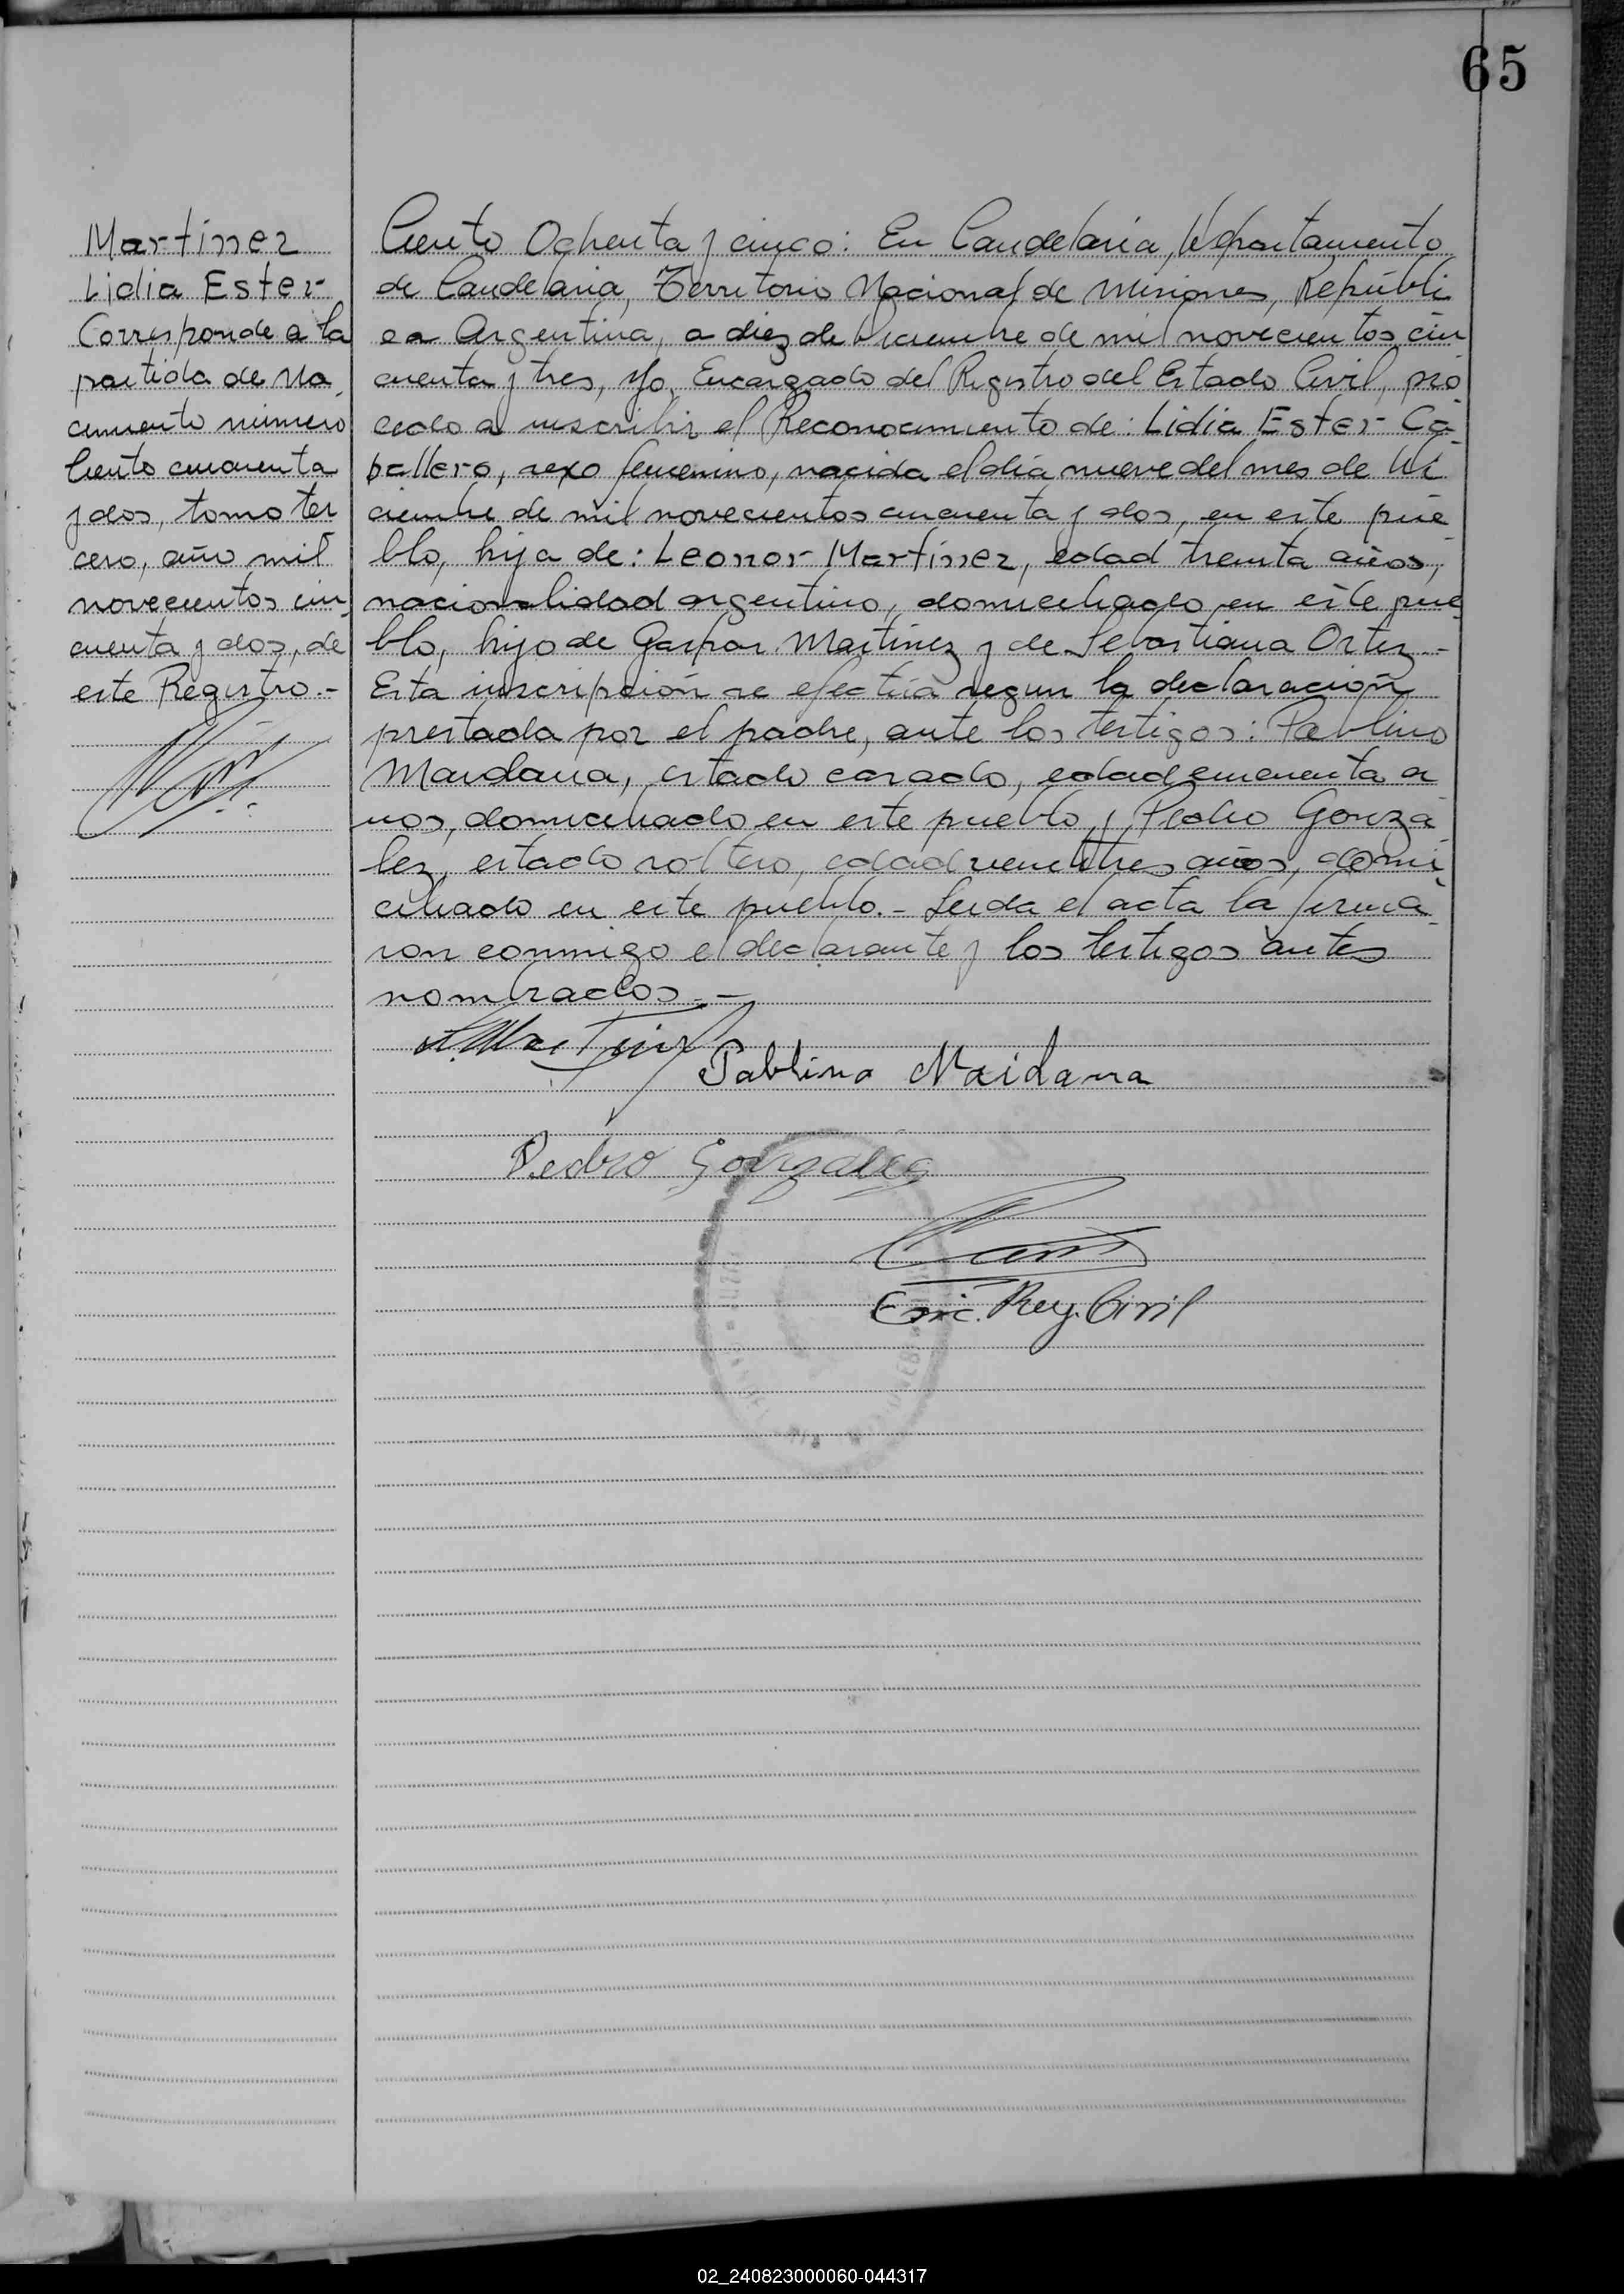 65
Martínez
Lidia Ester
Corresponde a la
partida de Na
cimiento número
Ciento cincuenta
y dos, tomo ter
cero, año mil
novecientos cin
cuenta y dos, de
este Registro.-
Ciento Ochenta y cinco: En Candelaria, Departamento
de Candelaria, Territorio Nacional de Misiones, Repúbli
ca Argentina, a diez de Diciembre de mil novecientos cin
cuenta y tres, Yo, Encargado del Registro del Estado Civil, pro
cedo a inscribir el Reconocimiento de: Lidia Ester Ca
ballero, sexo femenino, nacida el día nueve del mes de Di
ciembre de mil novecientos cincuenta y dos, en este pue
blo, hija de: Leonor Martínez, edad treinta años,
nacionalidad argentino, domiciliado en este pue
blo, hijo de Gaspar Martínez y de Sebastiana Ortiz.-
Esta inscripción se efectúa según la declaración
prestada por el padre, ante los testigos: Pablino
Maidana, estado casado, edad cincuenta a
ños, domiciliado en este pueblo y Pedro Gonzá
lez, estado soltero, edad veintitres años, domi
ciliado en este pueblo.- Leida el acta la firma
ron conmigo el declarante y los testigos antes
nombrados.-
Pablino Maidana
Pedro Gonzalez
Enc. Reg. Civil
02_240823000060-044317